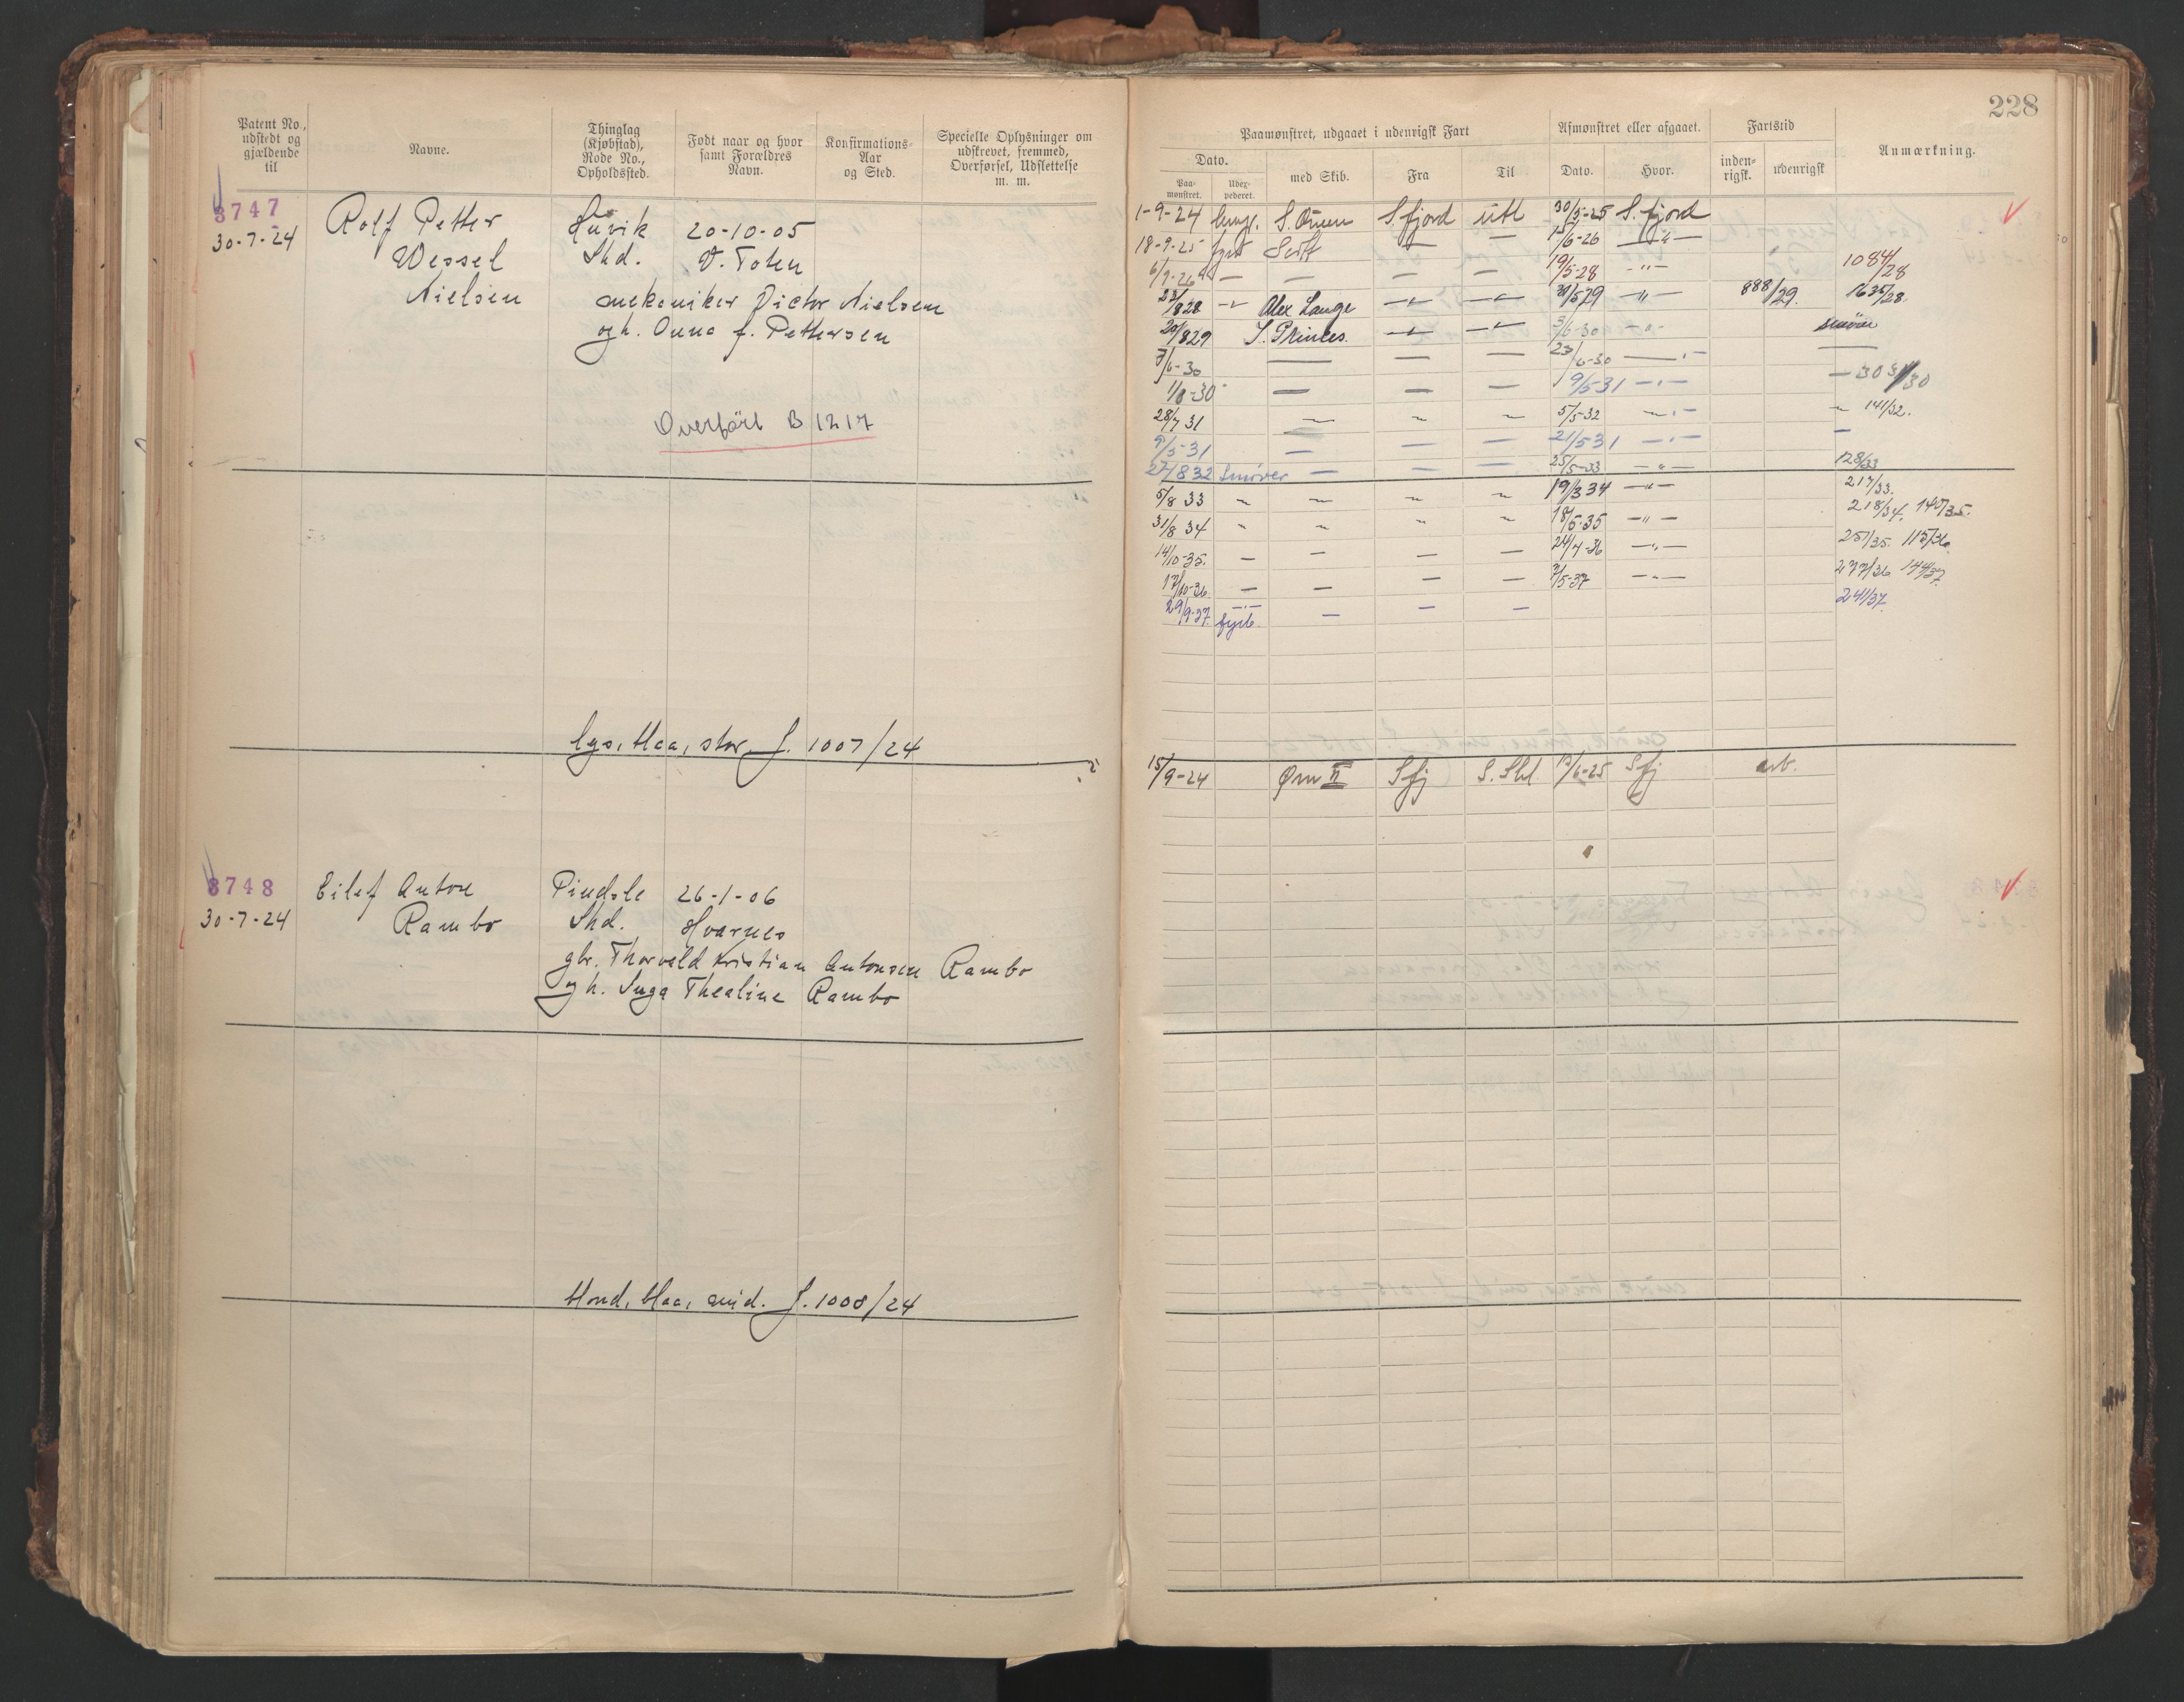 228
Patent No., udstedt og gjældende til
Navne.
Thinglag (Kjøbstad), Rode No., Opholdssted.
Født naar og hvor samt Forældres Navn.
Konfirmations- Aar og Sted.
Specielle Oplysninger om udskrevet, fremmed, Overførsel, Udslettelse m. m.
Paamønstret, udgaaet i udenrigsk Fart
Afmønstret eller afgaaet.
Fartstid
Anmærkning.
Dato.
med Skib.
Fra
Til
Dato.
Hvor.
inden- rigsk.
udenrigsk
Paa- mønstret.
3747
30-7-24
Rolf Petter
Wessel
Nielsen
Huvik 20-10-05
Shd. V. Toten
mekaniker Victor Nielsen
og h. Anna f. Pettersen
Overført B 1217
lys, blaa, stor. J. 1007/24
1-9-24 S. Ørnen S.fjord utl 30/5-25 S.fjord
18-9-25 fyrb — — 15/6-26 —"—
— — — — 19/5-28 —"— 1084/28
23/8 28 —"— Alex Lange —"— —"— 20/5 29 —"— 888/29. 1635/28.
20/8 29 S. Princes. —"— —"— 3/6-30 —"— smører
3/6-30 — — — 23/6-30 —"— —
1/8-30 — — — 9/5 31 —"— — 303/30
28/7 31 ~ ~ ~ 5/5-32 —"— ~ 141/32.
9/5-31 — — — 21/5 31 —"— —
27/8 32 Smører — — — 25/5-33 —"— 128/33
5/8 33 ~ ~ ~ ~ 19/3 34 —"— 217/33.
31/8 34 ~ ~ ~ ~ 18/5-35 —"— 218/34. 140/35.
14/10-35. — — — — 24/4-36 —"— 251/35. 115/36.
17/10-36. — — — — 7/5-37 —"— 277/36 144/37.
29/9-37. fyrb. — — — 241/37.
3748
30-7-24
Eilef Anton
Rambo
Pindsle 26-1-06
Shd. Hvarnes
gbr. Thorvald Kristian Antonsen Rambo
og h. Inga Thealine Rambo
blond, blaa, mid. J. 1008/24
15/9-24 Ørn II Sfj S. Shl Sfj arb.